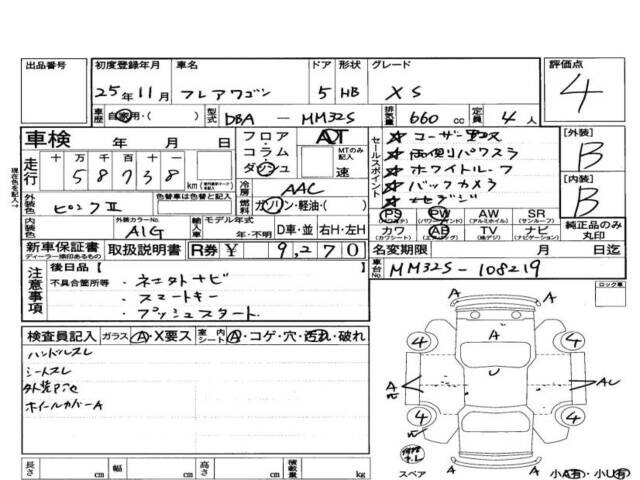 出品番号
初度登録年月
25年11月
車名
フレアワゴン
ドア
5
形状
HB
グレード
XS
評価点
4
車歴
自家用・( )
型式
DBA - MM32S
排気量
660 cc
定員
4人
車検 年 月 日
走行
十 万 千 百 十 一
5 8 7 3 8
km
フロア
コラム
ダッシュ
A D T
MTのみ記入
速
セールスポイント
★ 両側パワスラ
★ ホワイトルーフ
★ バックカメラ
[外装]
B
[内装]
B
現在色を記入→
外装色
ピンクII
色替車は色替と記入
冷房
AAC
燃料
ガソリン・軽油・( )
内装色
外装カラーNo.
A1G
輸入車
モデル年式
年・不明
D車・並 右H・左H
PS
(パワステ)
PW
(パワーウインド)
AW
(アルミホイル)
SR
(サンルーフ)
カワ
(カワシート)
AB
(エアバッグ)
TV
(地デジ)
ナビ
(ナビゲーション)
純正品のみ丸印
新車保証書
ディーラー捺印あるもの
取扱説明書
R券 ¥ 9,270
名変期限 月 日迄
注意事項
後日品[ ]
不具合箇所等
・スマートキー
・プッシュスタート
車台No.
MM32S-108219
ロック車
検査員記入
ガラス A・X要ス
室内シート A・コゲ・穴・汚れ・破れ
ハンドルスレ
シートスレ
ホイールカバーA
A
U
A
A
AU
A
A
A
4
4
4
4
スペア
小A有・小U有
長さ cm
幅 cm
高さ cm
積載量 kg